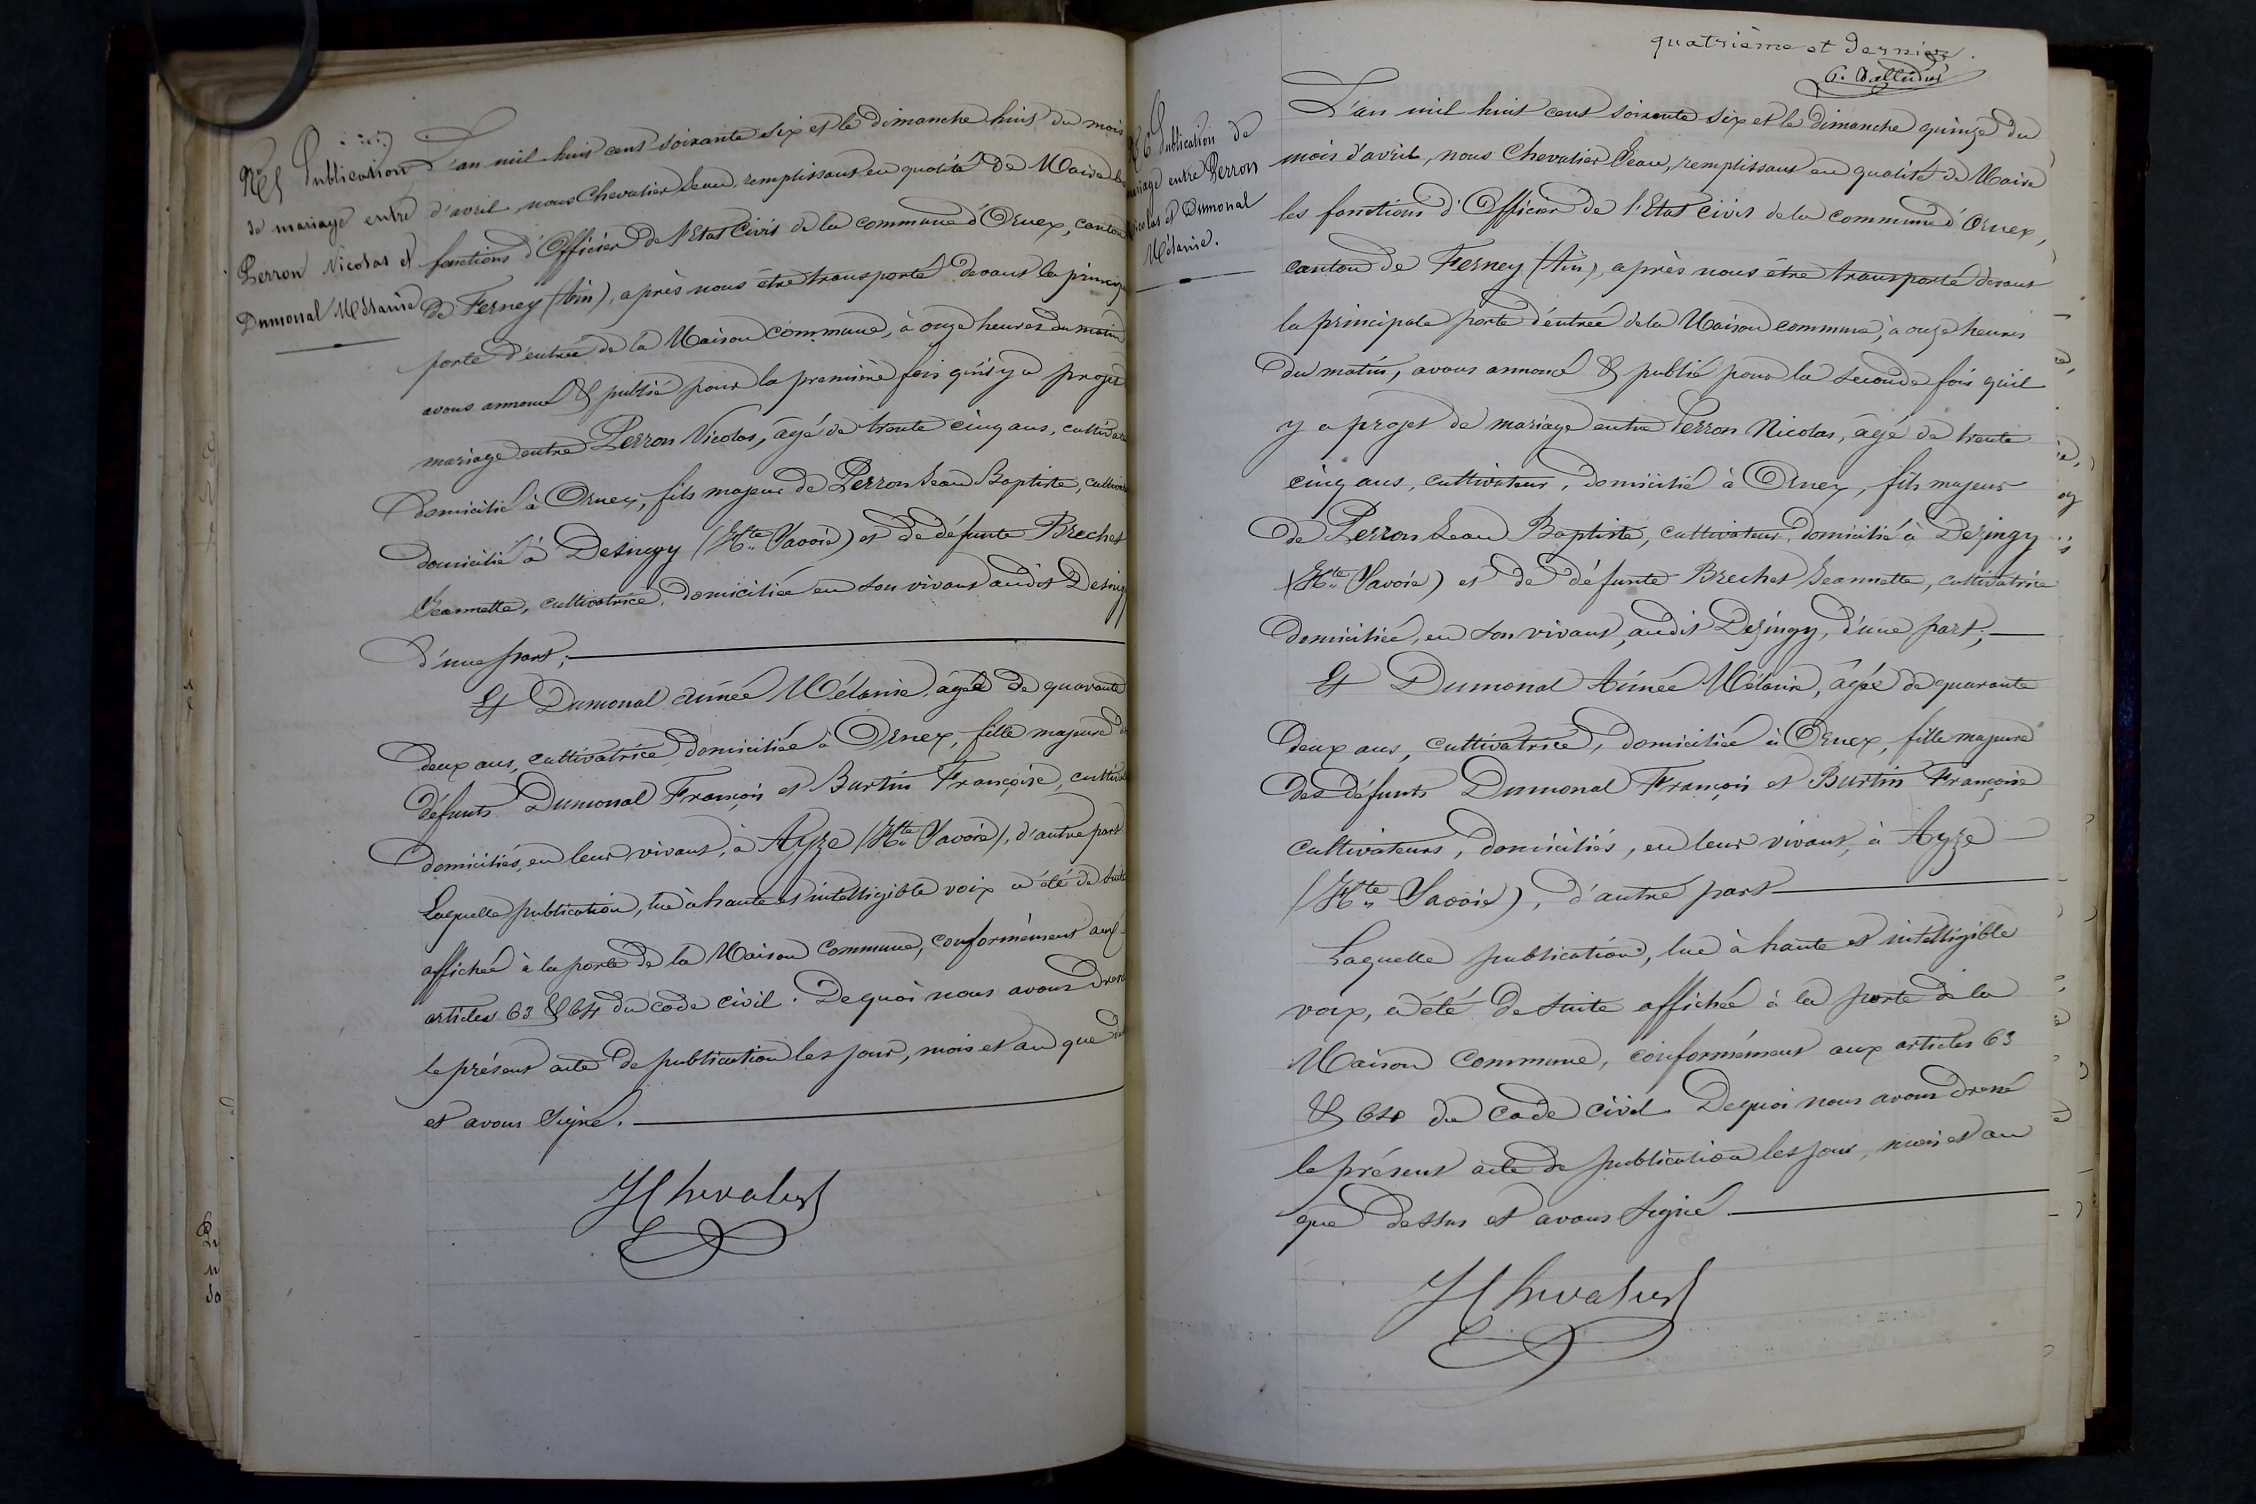 Publication
de mariage entre
Perron Nicolas et
Dumonal Mélanie
L'an mil huit cent soixante six et le dimanche huit du mois
d'avril, nous Chevalier Jean, remplissant en qualité de Maire les
fonctions d'Officier de l'Etat Civil de la commune d'Ornex, canton
de Ferney (Ain), après nous être transporté devant la princip
porte d'entrée de la Maison commune, à onze heures du matin
avons annoncé & publié pour la première fois qu'il y a projet
mariage entre Perron Nicolas, âgé de trente cinq ans, cultivate
domicilié à Ornex, fils majeur de Perron Jean Baptiste, cultiva
domicilié à Desingy (Hte Savoie) et de défunte Brechet
Jeannette, cultivatrice, domiciliée en son vivant audit Desingy
d'une part;
Et Dumonal Aimée Mélanie, âgée de quarante
deux ans, cultivatrice, domiciliée à Ornex, fille majeure d
défunts Dumonal François et Burtin Françoise, cultiva
domiciliés, en leur vivant, à Ayze (Hte Savoie), d'autre part
Laquelle publication, lue à haute et intelligible voix a été de suite
affichée à la porte de la Maison commune, conformément aux
articles 63 & 64 du code civil. De quoi nous avons dress
le présent acte de publication les jour, mois et an que
et avons signé.
JChevalier
quatrième et dernier.
6 Publication de
mariage entre Perron
Nicolas et Dumonal
Mélanie.
L'an mil huit cent soixante six et le dimanche quinze du
mois d'avril, nous Chevalier Jean, remplissant en qualité de Maire
les fonctions d'Officier de l'Etat civil de la commune d'Ornex,
canton de Ferney (Ain), après nous être transporté devant
la principale porte d'entrée de la Maison commune, à onze heures
du matin, avons annoncé & publié pour la seconde fois qu'il
y a projet de mariage entre Perron Nicolas, âgé de trente
cinq ans, cultivateur, domicilié à Ornex, fils majeur
de Perron Jean Baptiste, cultivateur, domicilié à Dezingy
(Hte Savoie) et de défunte Brechet Jeannette, cultivatrice
domiciliée, en son vivant, audit Dezingy, d'une part;
Et Dumonal Aimée Mélanie, âgée de quarante
deux ans, cultivatrice, domiciliée à Ornex, fille majeure
des défunts Dumonal François et Burtin Françoise
cultivateurs, domiciliés, en leur vivant, à Ayze
(Hte Savoie), d'autre part
Laquelle publication, lue à haute et intelligible
voix, a été de suite affichée à la porte de la
Maison commune, conformément aux articles 63
& 64 du code civil. De quoi nous avons dressé
le présent acte de publication les jour, mois et an
que dessus et avons signé
JChevalier